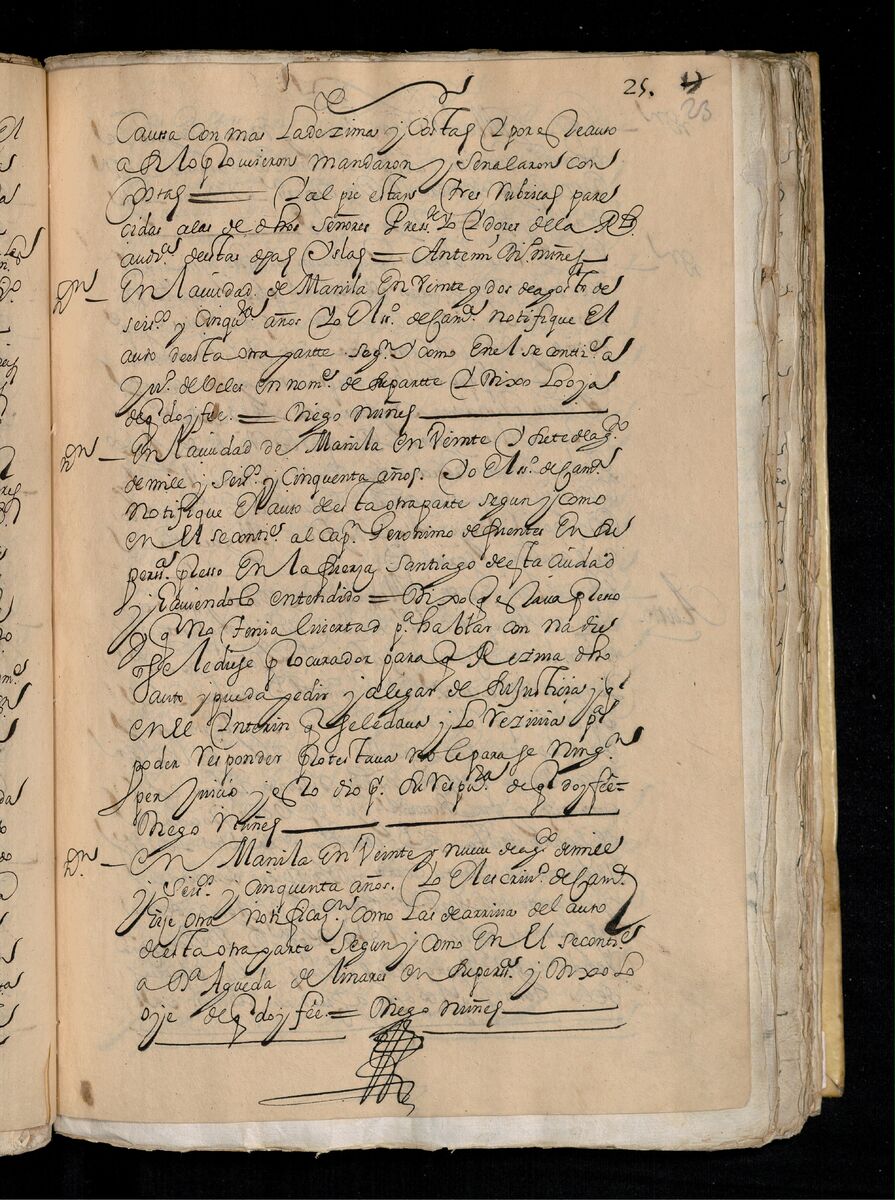 25. 4
23
Caussa con mas la dezima y costas y por este auto
asi lo proueieron mandaron y señalaron con
costas = Y al pie estan tres rubricas pare
cidas a las de dhos señores Press.te y oydores de la Rl.
aud.a destas dhas yslas = Antemi Di.o nuñes
nn En la ciudad de Manila En Veinte y dos de agosto de
seis.os y cinqu.ta años Yo El ss.no de cam.ra notifique El
auto desta otra partte seg.n y como En el se conti.e a
Ju.o de Ucles en nom.e de su partte y Dixo lo oja
de q doy fee. = Diego nuñes
nn En la ciudad de Manila en Veinte y siete de ag.to
de mill y seis.os y Cinquenta años. Yo El ss.no de cam.ra
Notifique El auto de esta otra parte segun y como
en El se conti.e al Cap.n Geronimo de fuentes En su
perss.a presso En la fuerza Santiago desta ciudad
y hauiendolo entendido = Dixo q estaua preso
y q no tenia liuertad p.a hablar con nadie
q se le diese procurador para q Reziua dho
auto y pueda pedir y alegar de su justicia y q
en el Ynterin q se le daua y lo rezivia p.a
poder responder protestaua no le parase ning.n
perjuicio y esto dio p.r su resp.ta de q doy fee =
Diego Nuñes
nn En Manila En Veinte y nueue de ag.to de mill
y seis.os y cinquenta años. Yo El escriu.o de cam.ra
hije otra notificaz.n como las de arriua del auto
desta otra parte segun y como En El se conti.e
a D.a Agueda de linares en su perss.a y Dixo lo
oje de q doy fee = Diego nuñes